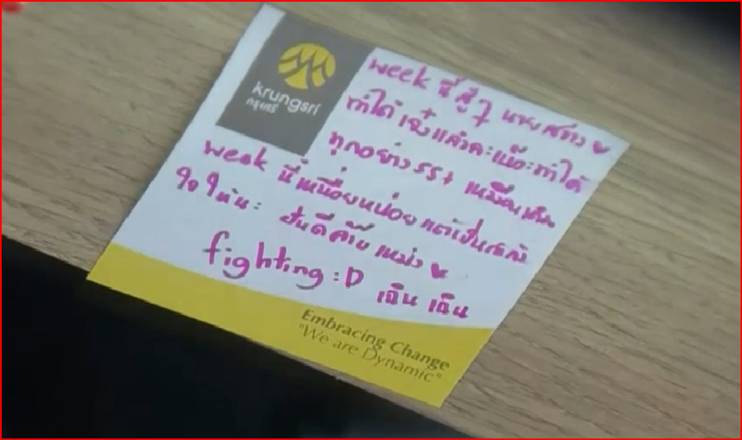 krungsri
กรุงศรี
week นี้สู้ๆ นะ
ทำได้ เจ๋งแล้วค่ะแม๊ะทำได้
ทุกอย่าง 55+ เหมือนเดิม
week นี้เหนื่อยหน่อยแต่เป็นกำลัง
ใจให้นะ
fighting :D เฉิน เฉิน
Embracing Change
"We are Dynamic"